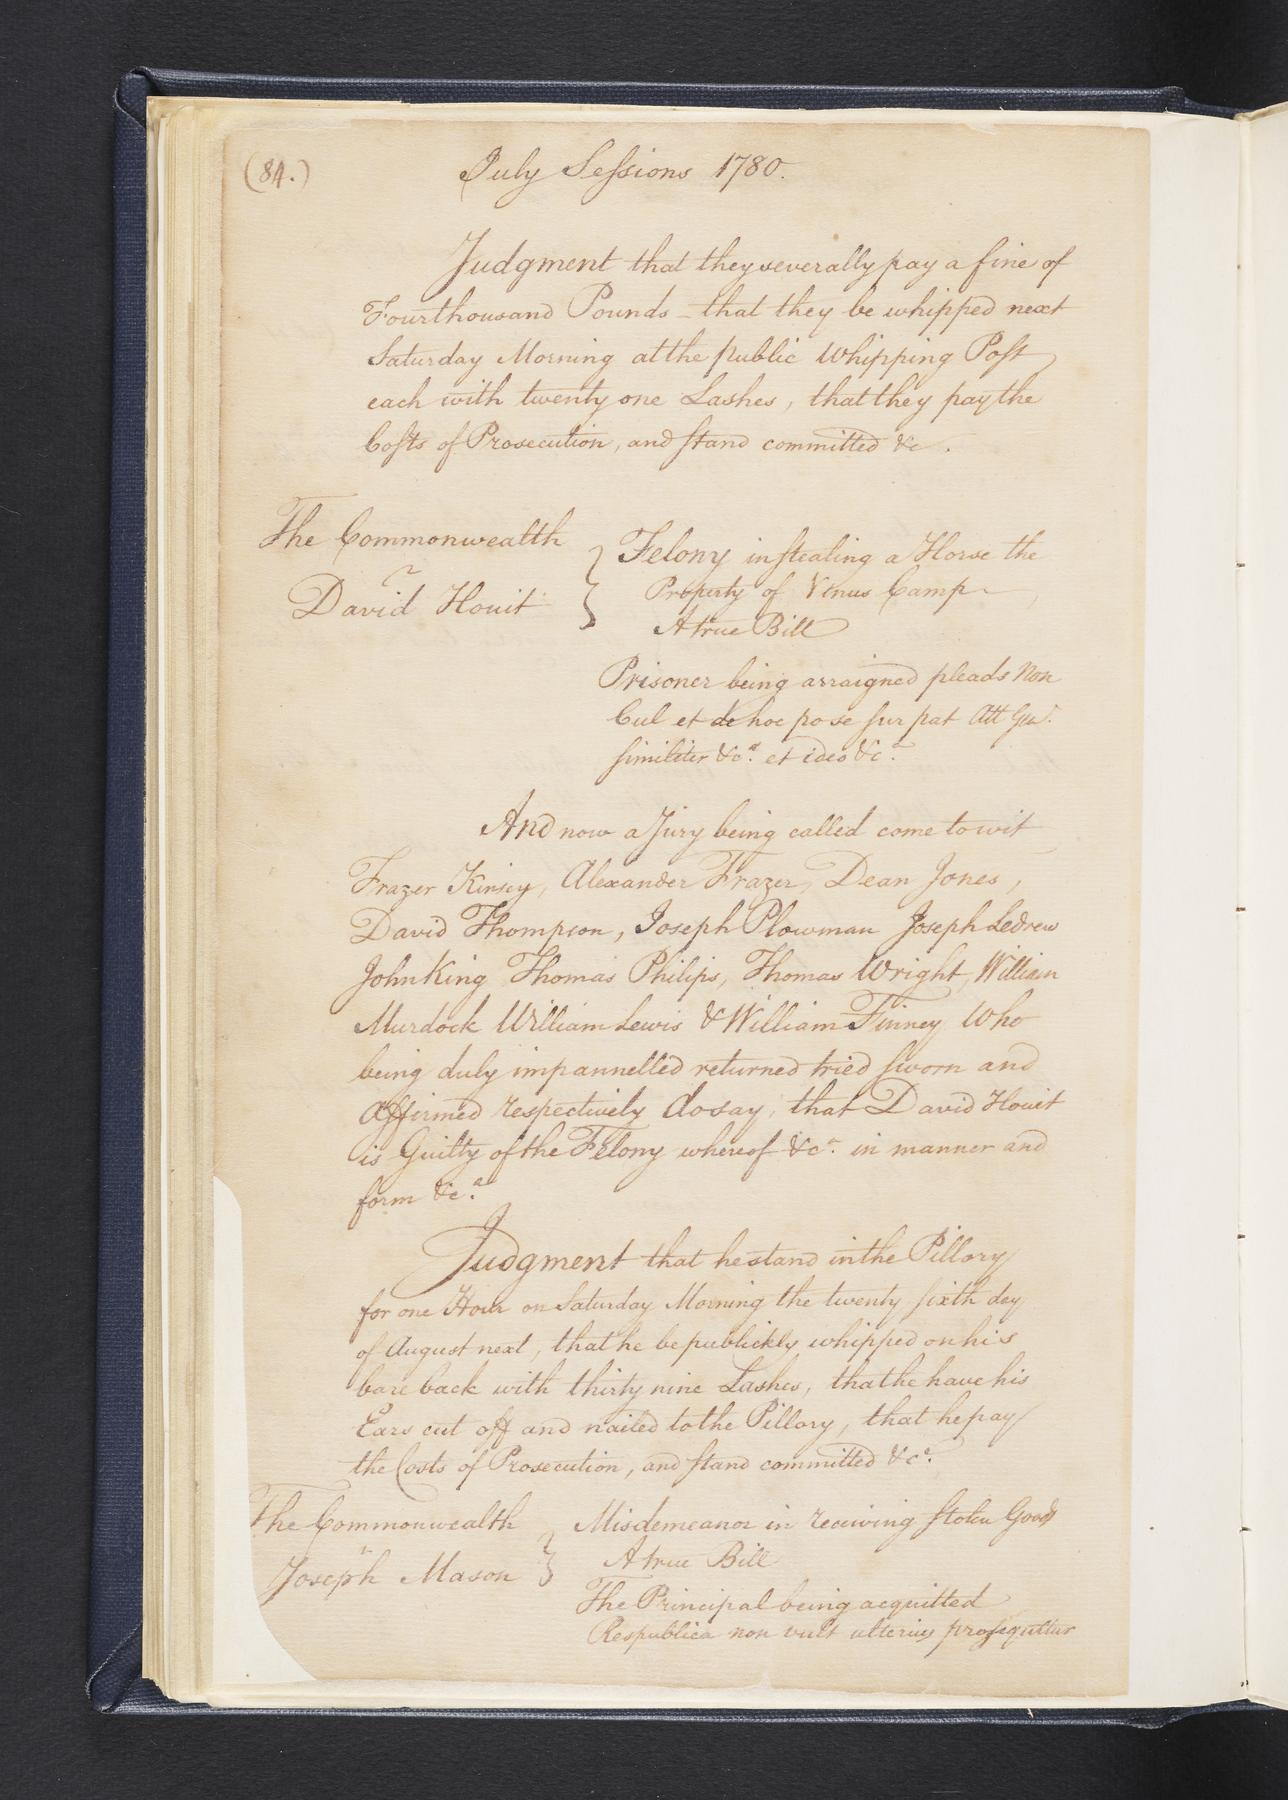 (84.)
July Sessions 1780.
Judgment that they severally pay a fine of
Fourthousand Pounds - that they be whipped next
Saturday Morning at the public Whipping Post
each with twenty one Lashes, that they pay the
Costs of Prosecution, and stand committed &c.
The Commonwealth
v
David Houit
Felony in stealing a Horse the
Property of Venus Camp
A true Bill
Prisoner being arraigned pleads Non
Cul et de hoc po se sur pat Att Gen.
similiter &ca. et ideo &c.
And now a Jury being called come to wit
Frazer Kinsey, Alexander Frazer, Dean Jones,
David Thompson, Joseph Plowman Joseph Ledrew
John King Thomas Philips, Thomas Wright, William
Murdock William Lewis & William Finney Who
being duly impannelled returned tried sworn and
Affirmed respectively do say, that David Houit
is Guilty of the Felony whereof &c. in manner and
form &ca.
Judgment that he stand in the Pillory
for one Hour on Saturday Morning the twenty sixth day
of August next, that he be publickly whipped on his
bare back with thirty nine Lashes, that he have his
Ears cut off and nailed to the Pillory, that he pay
the Costs of Prosecution, and stand committed &ca.
The Commonwealth
v
Joseph Mason
Misdemeanor in receiving stolen Goods
A true Bill
The Principal being acquitted
Respublica non vult ulterius prosequitur